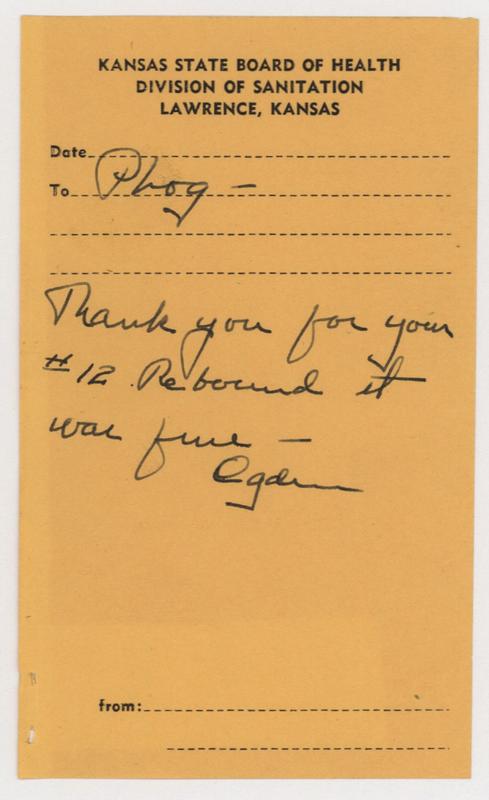 KANSAS STATE BOARD OF HEALTH
DIVISION OF SANITATION
LAWRENCE, KANSAS
Date
To Phog -
Thank you for your
#12 Rebound it
was fine -
Ogden
from: